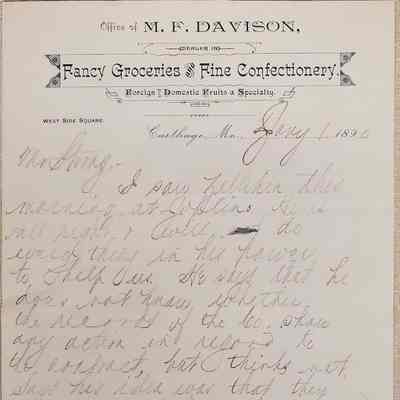 Office of M. F. DAVISON,
DEALER IN
Fancy Groceries and Fine Confectionery.
Foreign and Domestic Fruits a Specialty.
WEST SIDE SQUARE.
Carthage, Mo., Jany 1 1890
Mr Strong,-
I saw this
morning at Joplin. He is
all right, & will do
every thing in his power
to help Our. He says that he
does not know whether
the records of the Co. show
any action in regard to
the contract, but thinks not.
Says his idea was that they